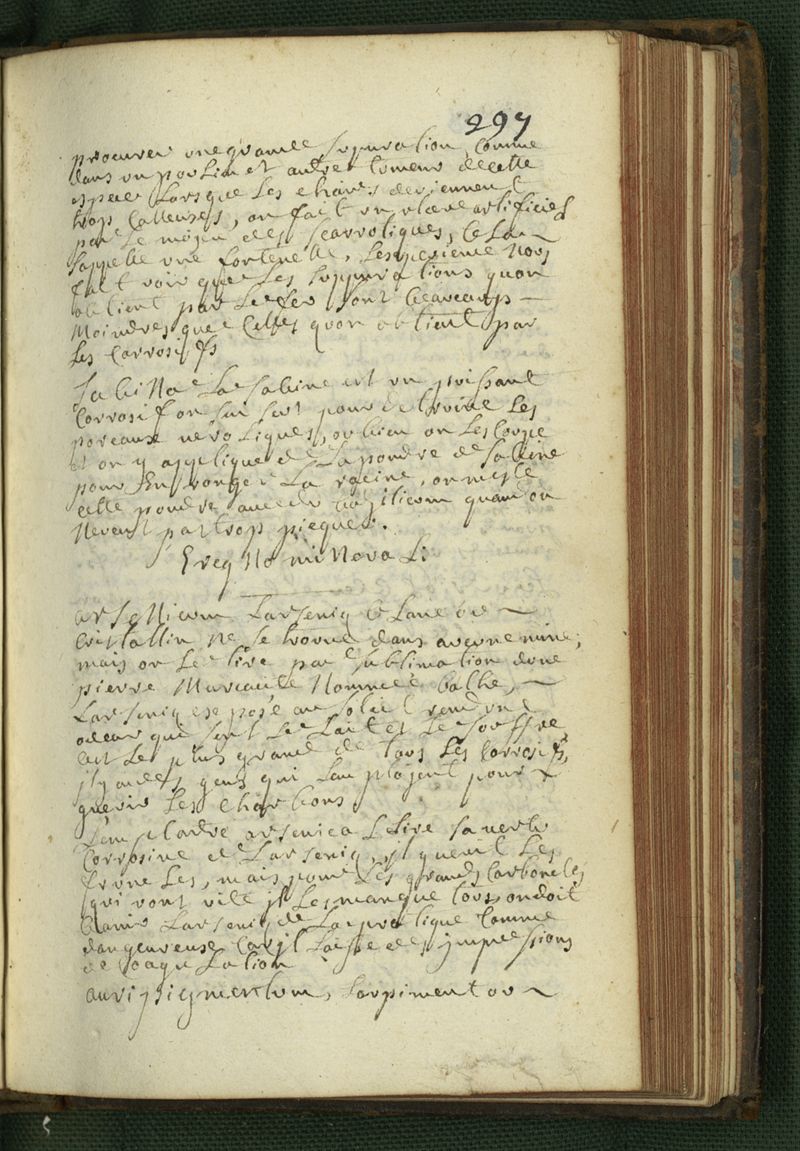 297
procurer une grande supuration, comme
dans un poulin et autre tumeur de cette
espece lorsque les chairs deviennent
trop calleuses, on fait un ulcere artificiel
par le moyen des scarrotiques, cela
sappelle une fontenelle, lexperience nous
fait voir que les suppurations quon
obtient par le fer sont beaucoup
moindres que celles quon obtient par
les corrosifs
Sabina La sabine est un puissant
corrosif on sen sert pour detruire les
poreaux veroliques, ou bien on les coupe
et on y applique de la poudre de sabine
pour en ronger la racine, on mesle
cette poudre avec du basilicum quand on
ne veut pas trop piequer.
Ereg No minerali
arsenicum Larseniq blanc ou
cristallin ne se trouve dans aucune mine,
mais on le tire par sublimation dune
pierre Marcasite Nommée
Larseniq exposé au soleil rend une
odeur qui sent le lait et le souffre
cest le plus grand de tous les corrosifs,
il y a des gens qui lemployent pour
guerir les charbons
Lemplastre arsenical tire sa vertu
corrosive de larseniq, il guerit les
, mais pour les grands carboncles
qui vont vite il les manque tous on doit
banir larseniq de la pratique comme
dangeureuse car il laisse des impressions
de coagulation
auripigmentum, Lorpiment ou